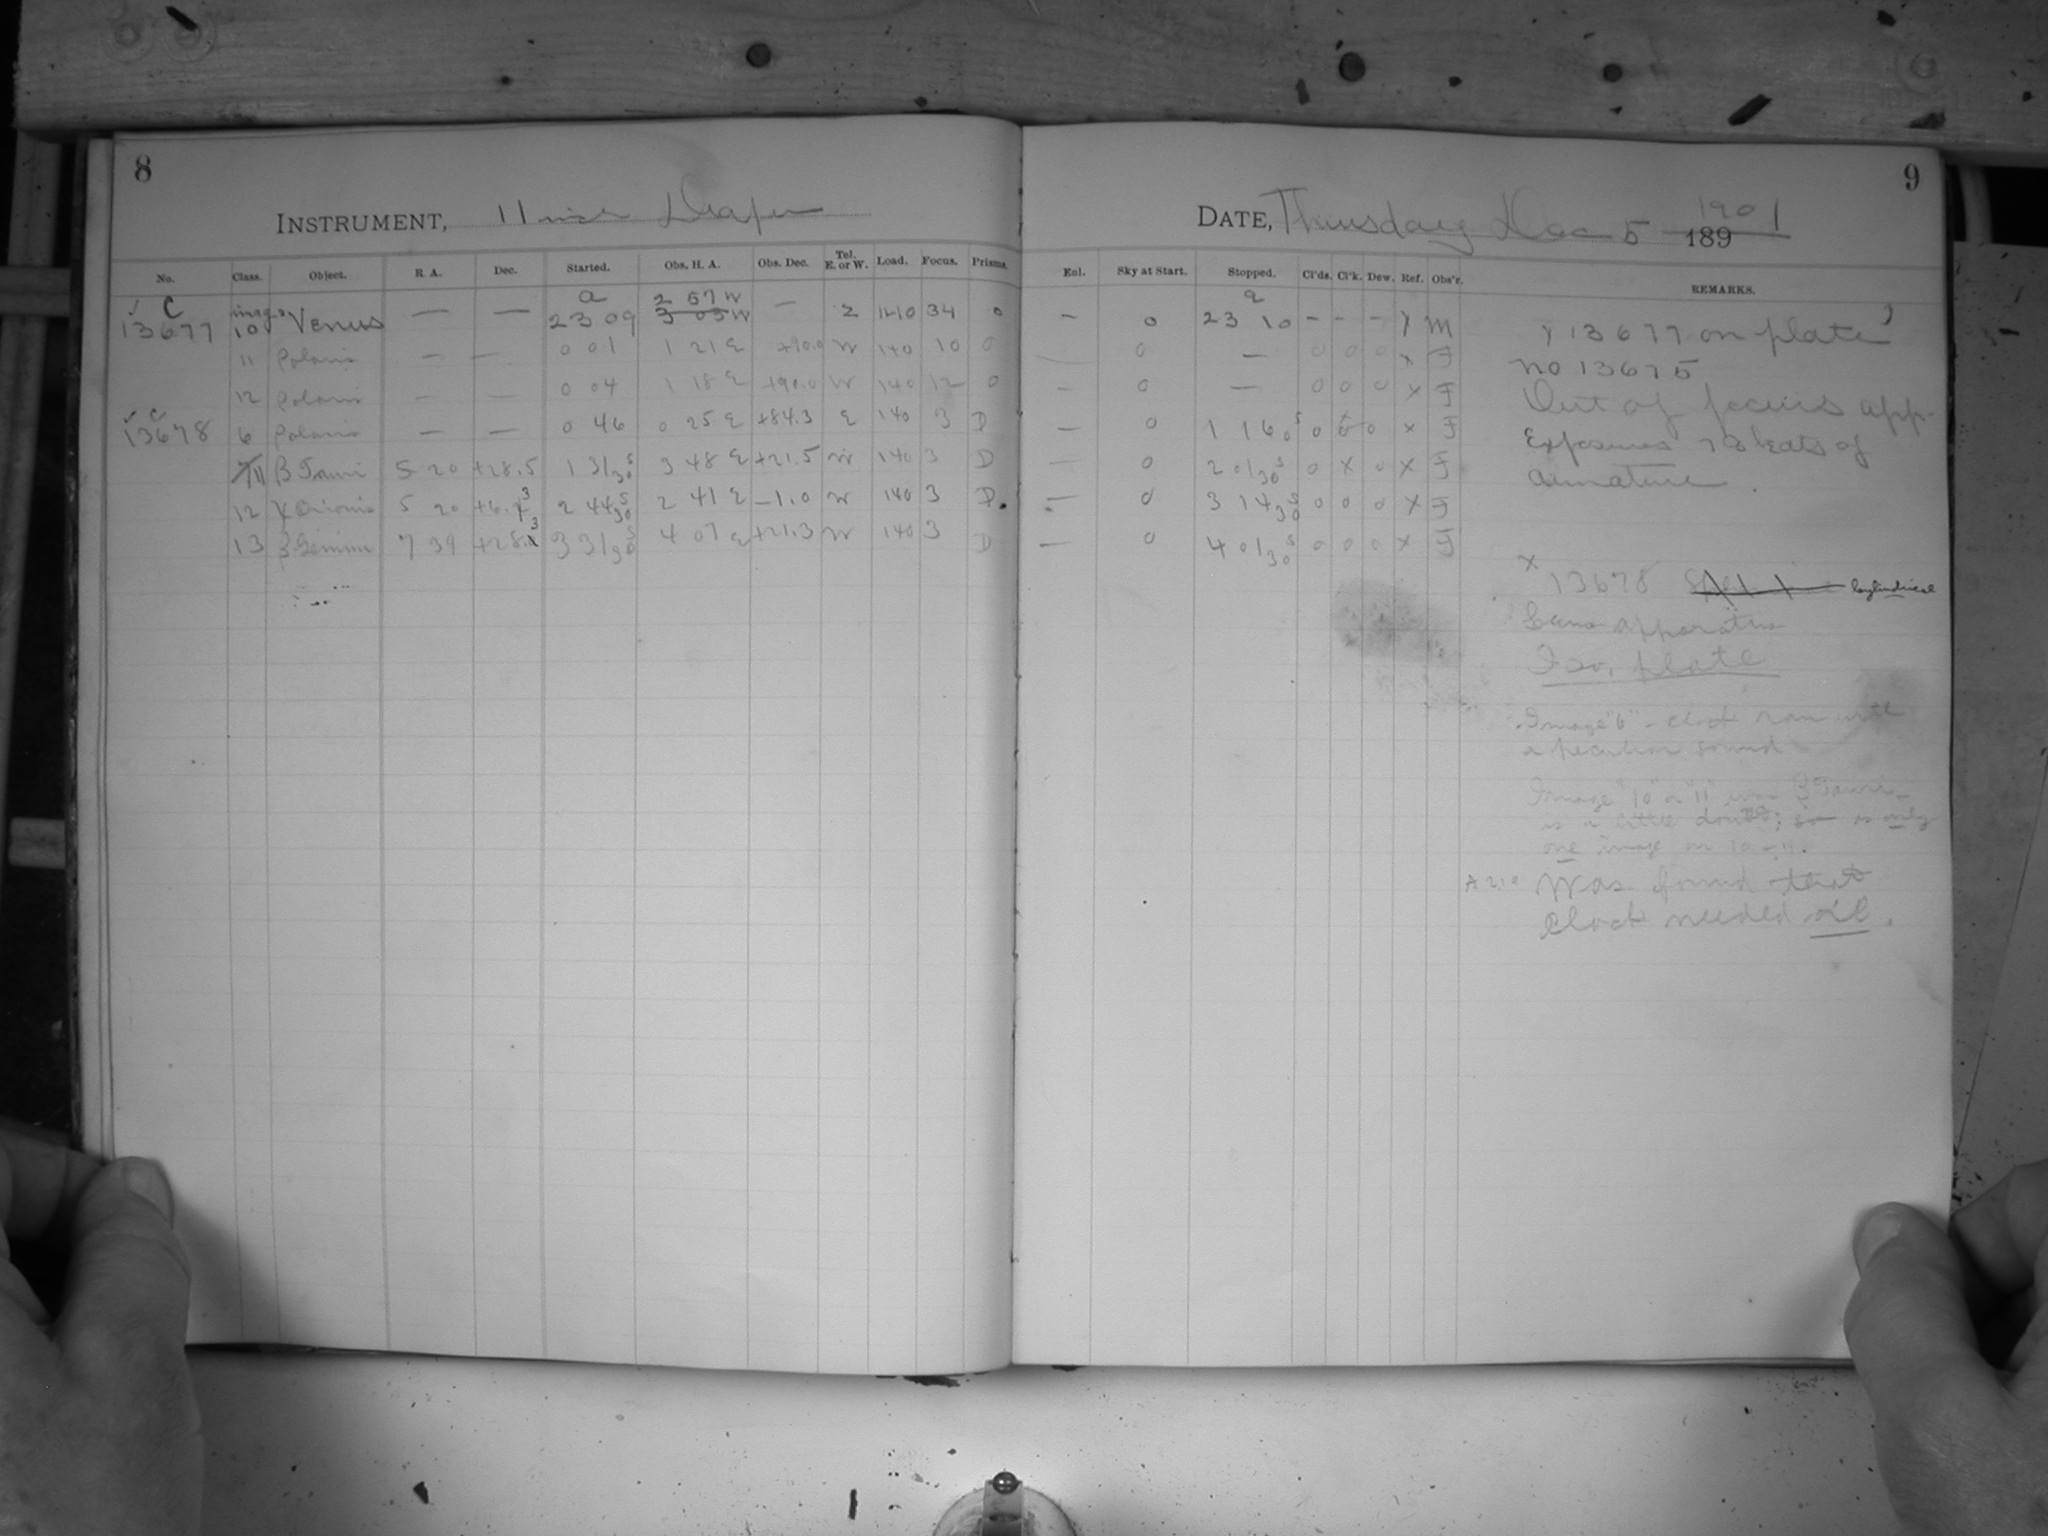 8
INSTRUMENT, 11 inch Draper
No. Class. Object. R. A. Dec. Started. Obs. H. A. Obs. Dec. Tel. E. or W. Load. Focus. Prisms.
C image a 2 57 W
13677 10 Venus — — 23 09 3 03 W — 2 140 34 0
11 Polaris — — 0 01 1 21 E +90.0 W 140 10 0
12 Polaris — — 0 04 1 18 E +90.0 W 140 12 0
C
13678 6 Polaris — — 0 46 0 25 E +84.3 E 140 3 D
11 β Tauri 5 20 +28.5 1 31 30s 3 48 E +21.5 W 140 3 D
12 γ Orionis 5 20 +6.3 2 44 30s 2 41 E -1.0 W 140 3 D
13 β Gemin 7 39 +28.3 3 31 30s 4 07 E +21.3 W 140 3 D
9
DATE, Thursday Dec 5 1901
189
Eol. Sky at Start. Stopped. Cl'ds. Cl'k. Dew. Ref. Obs'r. REMARKS.
— 0 23 10 - - - Y M
— 0 — 0 0 0 x F
— 0 — 0 0 0 x F
— 0 1 16 0s 0 0 x F
— 0 2 01 30s 0 x 0 x F
— 0 3 14 30s 0 0 0 x F
— 0 4 01 30s 0 0 0 x F
Y 13677 on plate
no 13675
Out of focus app.
Exposures 73 beats of
armature.
x
13678 Cylindrical
Lens apparatus
Iso. plate
Image "6" - clock ran with
a peculiar sound
Image "10" or "11" was β Tauri -
is a little doubt; so is only
one image on 10 - 11.
Was found that
Clock needed oil.